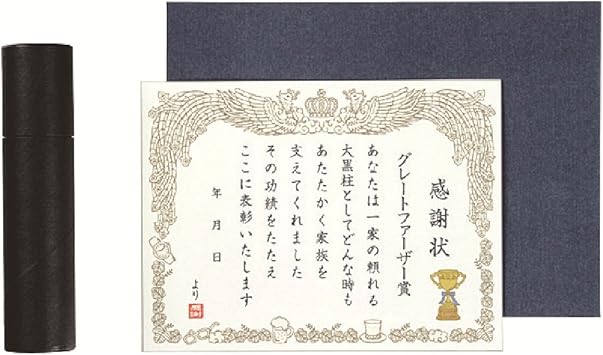 感謝状
グレートファーザー賞
あなたは一家の頼れる
大黒柱としてどんな時も
あたたかく家族を
支えてくれました
その功績をたたえ
ここに表彰いたします
年 月 日
より
感謝